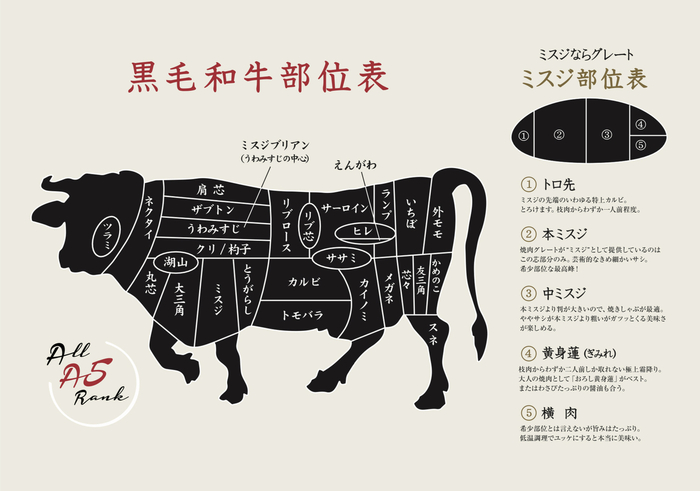 黒毛和牛部位表
ミスジブリアン
(うわみすじの中心)
えんがわ
ツラミ
ネクタイ
肩芯
ザブトン
うわみすじ
クリ/杓子
リブロース
リブ芯
サーロイン
ヒレ
ランプ
いちぼ
外モモ
湖山
ササミ
丸芯
大三角
ミスジ
とうがらし
カルビ
トモバラ
カイノミ
メガネ
芯々
友三角
かめのこ
スネ
All
A5
Rank
ミスジならグレート
ミスジ部位表
①
②
③
④
⑤
① トロ先
ミスジの先端のいわゆる特上カルビ。
とろけます。枝肉からわずか一人前程度。
② 本ミスジ
焼肉グレートが“ミスジ”として提供しているのは
この芯部分のみ。芸術的なきめ細かいサシ。
希少部位な最高峰!
③ 中ミスジ
本ミスジより判が大きいので、焼きしゃぶが最適。
ややサシが本ミスジより粗いがガツッとくる美味さ
が楽しめる。
④ 黄身蓮 (ぎみれ)
枝肉からわずか二人前しか取れない極上霜降り。
大人の焼肉として「おろし黄身蓮」がベスト。
またはわさびたっぷりの醤油も合う。
⑤ 横肉
希少部位とは言えないが旨みはたっぷり。
低温調理でユッケにすると本当に美味い。